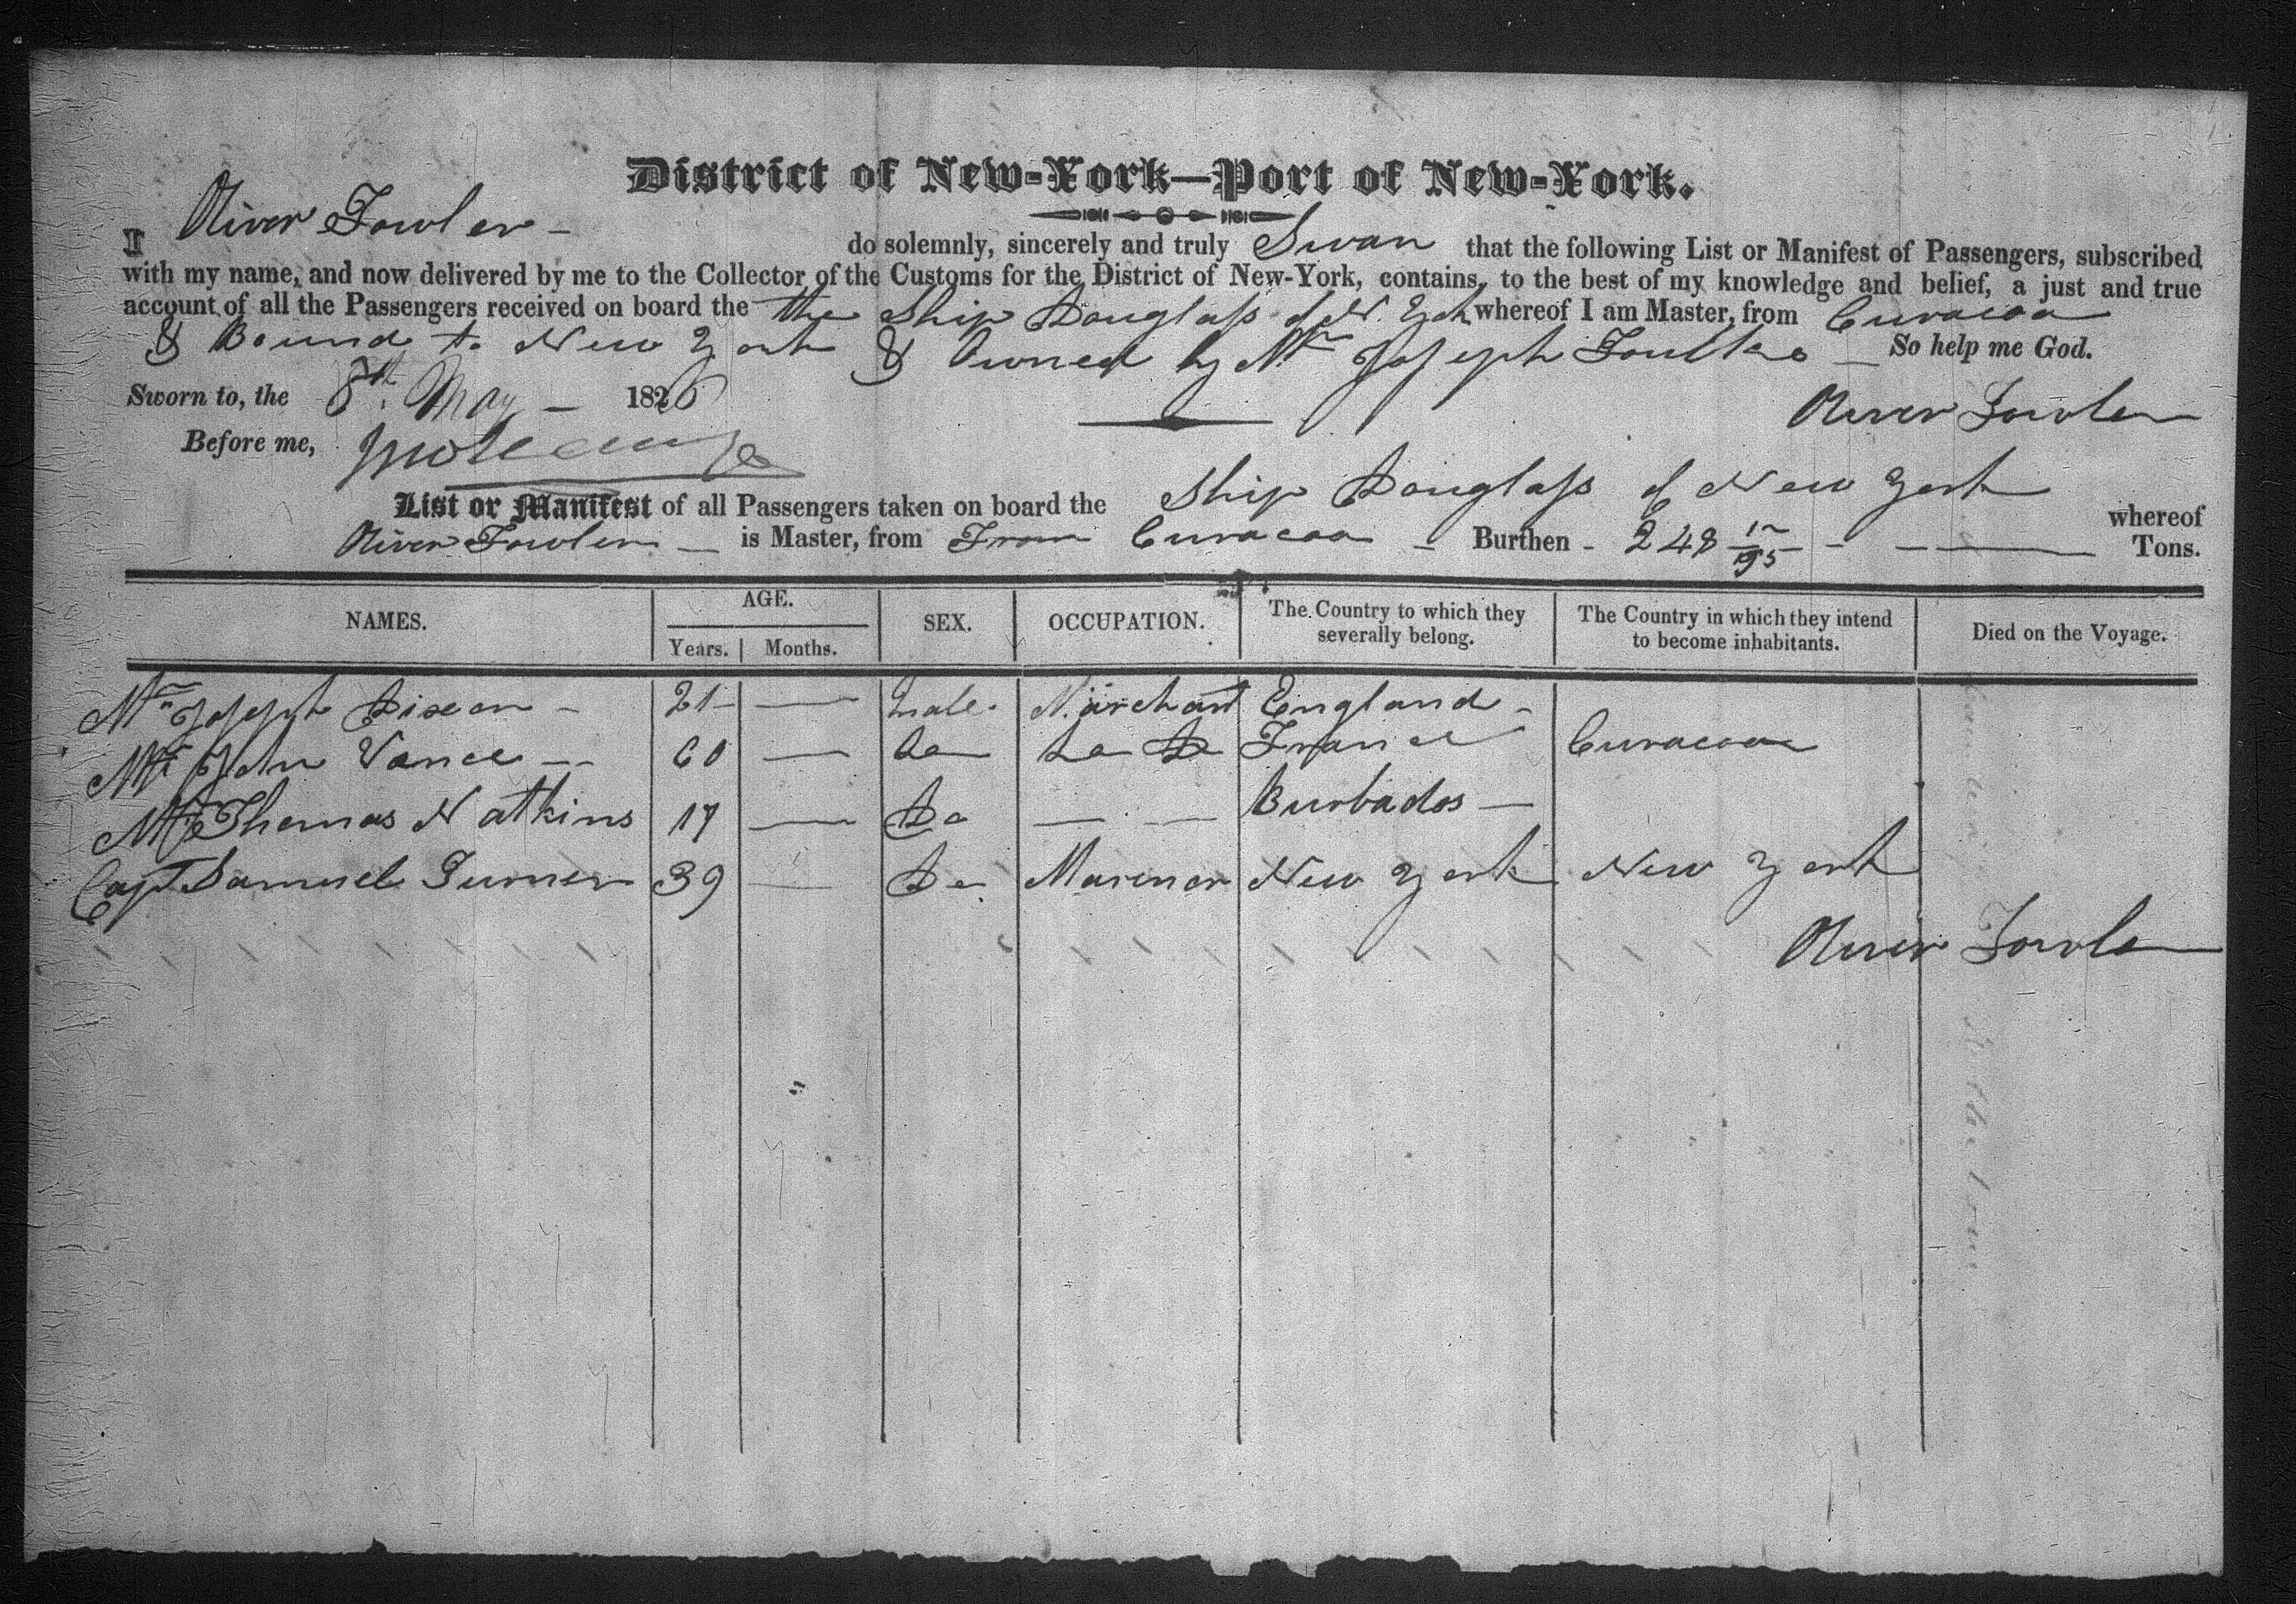 District of New-York—Port of New-York.
I Oliver Fowler - do solemnly, sincerely and truly Swear that the following List or Manifest of Passengers, subscribed
with my name, and now delivered by me to the Collector of the Customs for the District of New-York, contains, to the best of my knowledge and belief, a just and true
account of all the Passengers received on board the the Ship Douglass of N. York whereof I am Master, from Curacoa
& Bound to New York & Owned by Mr Joseph Foulke So help me God.
Sworn to, the 8th May - 1826 Oliver Fowler
Before me,
List or Manifest of all Passengers taken on board the Ship Douglass of New York whereof
Oliver Fowler is Master, from From Curacoa - Burthen - 248 Tons.
NAMES. AGE. SEX. OCCUPATION. The Country to which they severally belong. The Country in which they intend to become inhabitants. Died on the Voyage.
Years. Months.
Mr Joseph Dixon - 21 — male. Marchant England -
Mr John Vance - 60 — Do Do Do France Curacoa
Mr Thomas Watkins 17 — Do — — Burbados —
Capt Samuel Turner 39 — Do Mariner New York New York
Oliver Fowler